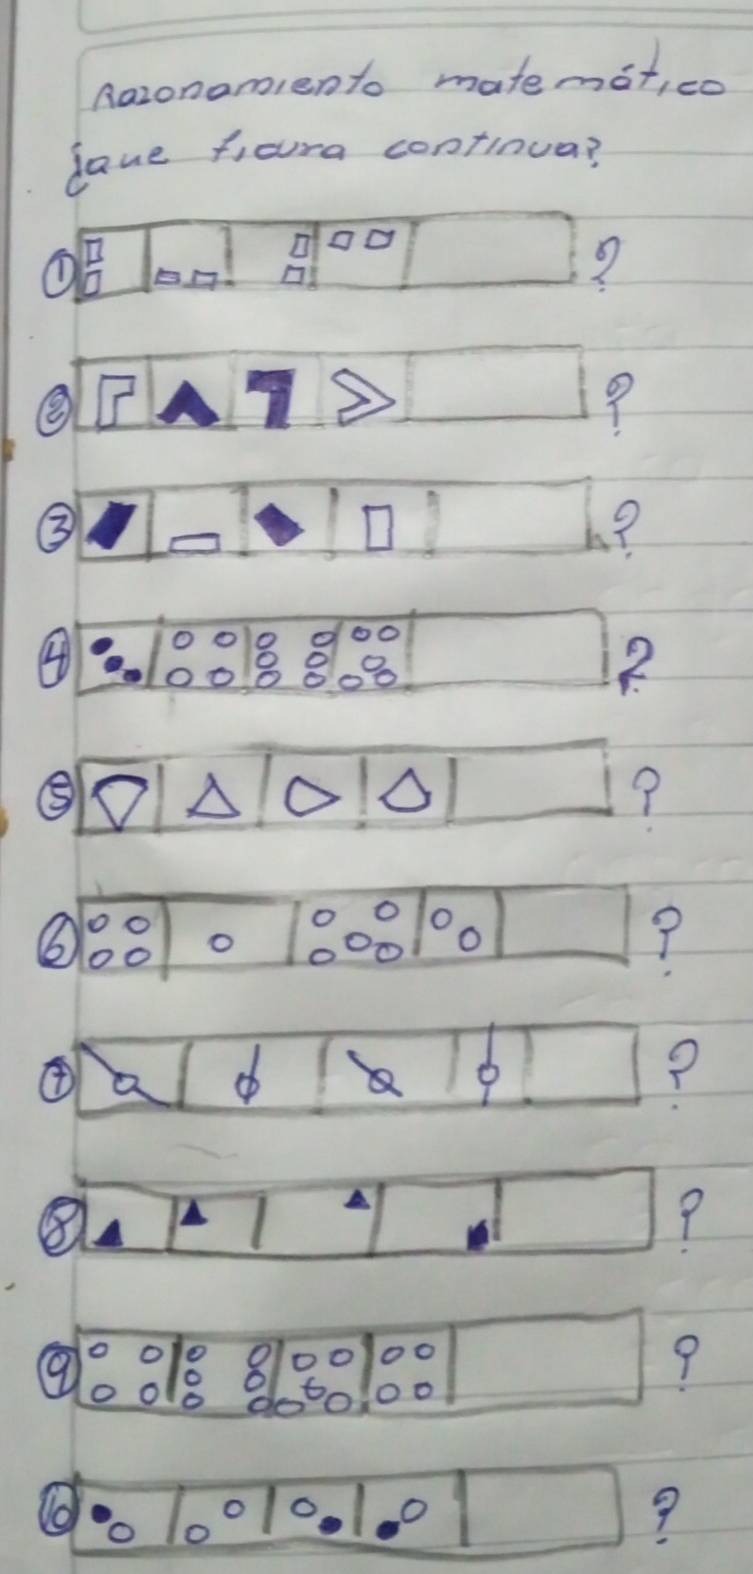 Razonamiento matemático
¿que figura continua?
① ?
② ?
③ ?
④ ?
⑤ ?
⑥ ?
⑦ ?
⑧ ?
⑨ ?
⑩ ?